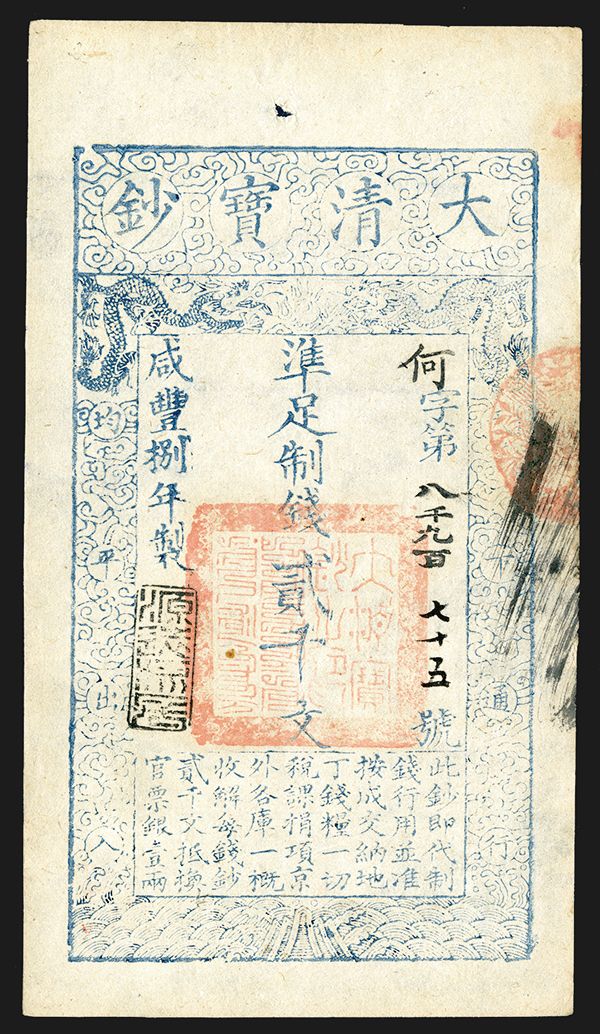 大清寶鈔
何字第八千九百七十五號
準足制錢貳千文
咸豐捌年製
此鈔即代制
錢行用並准
按成交納地
丁錢糧一切
稅課捐項京
外各庫一概
收解每錢鈔
貳千文抵換
官票銀壹兩
天下通行
均平出入